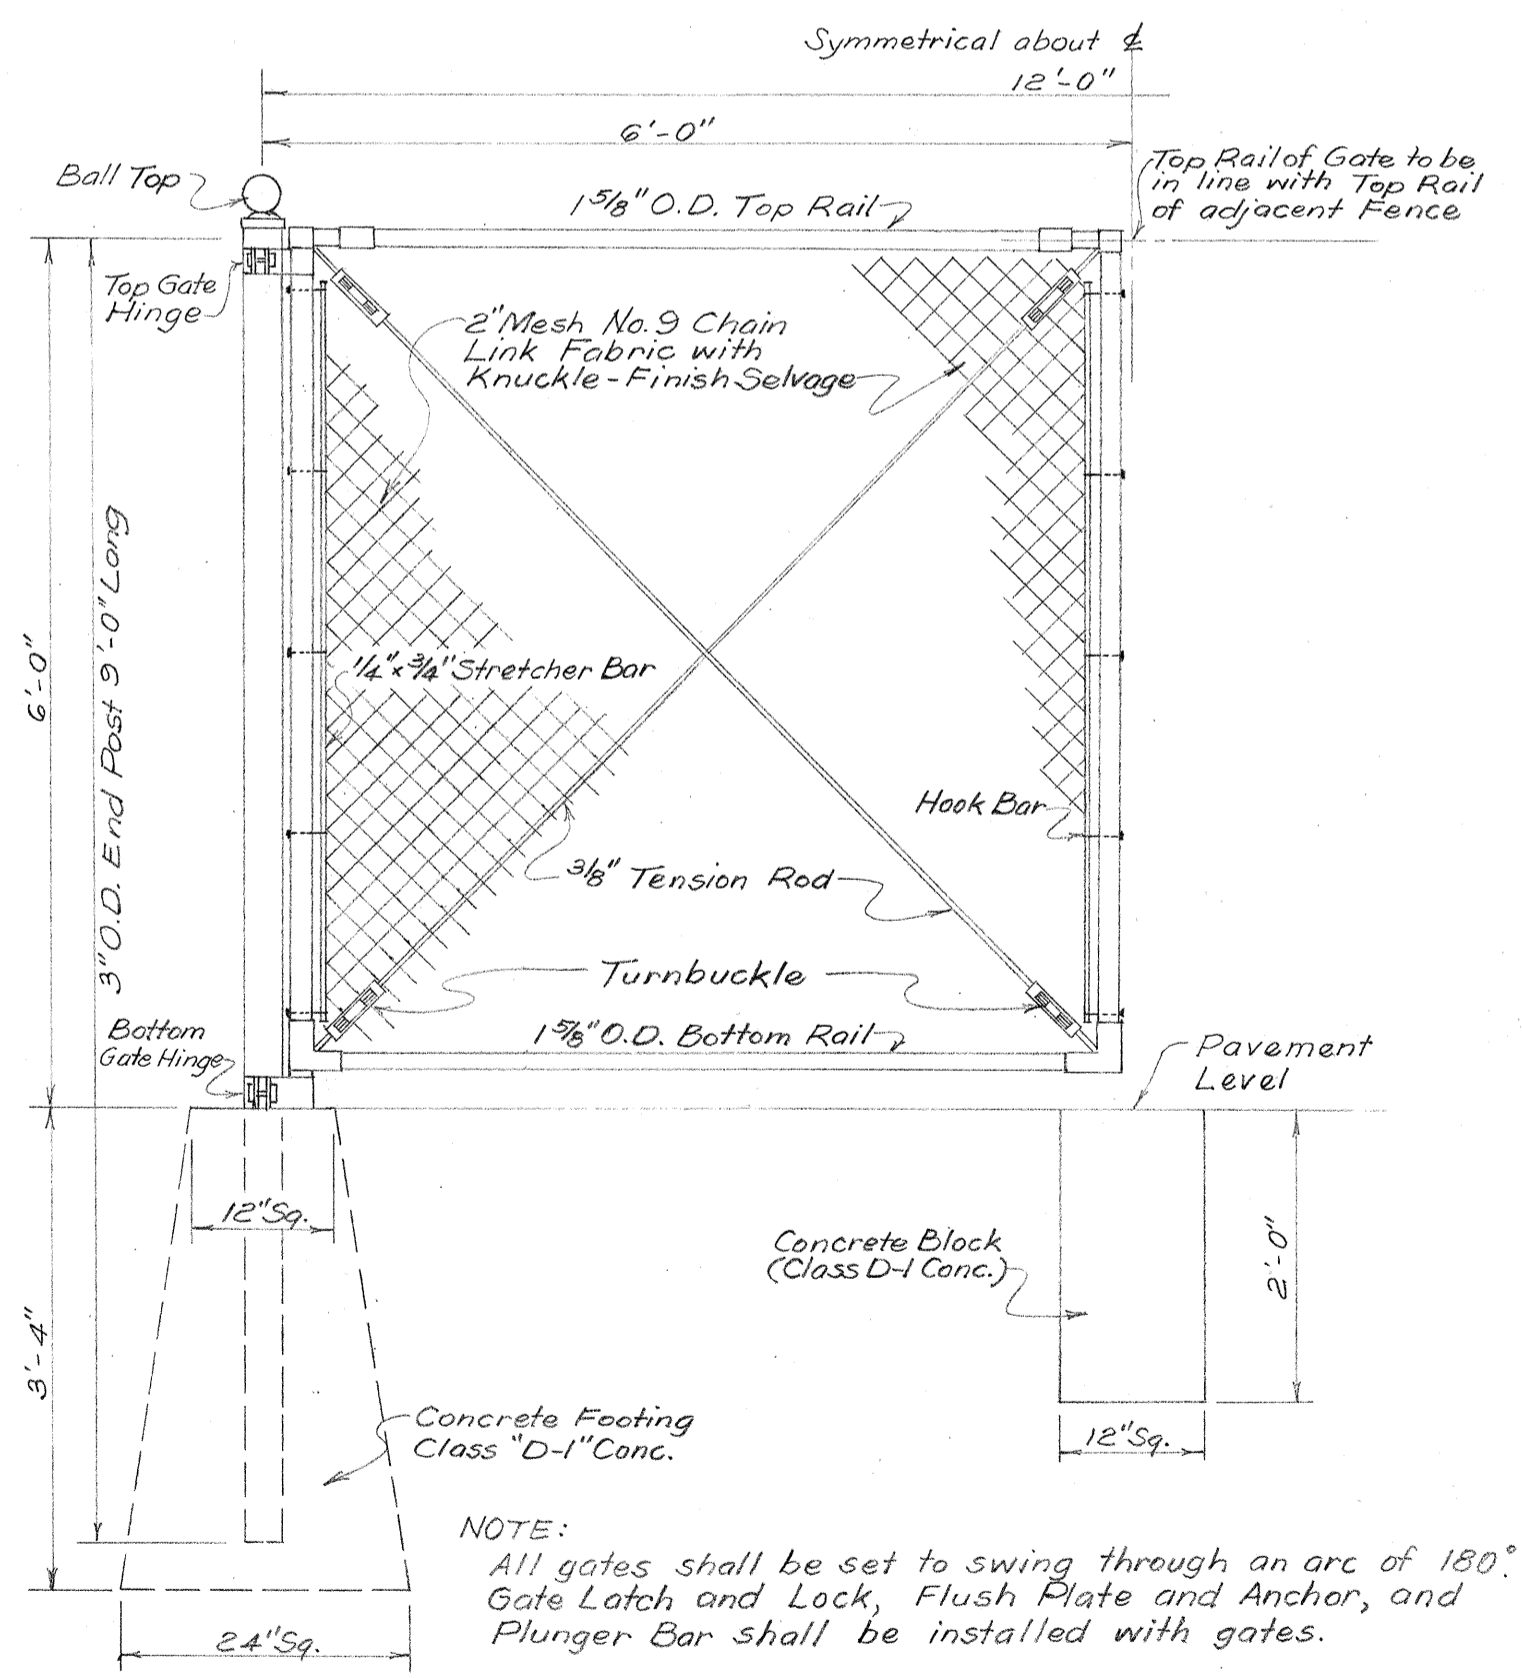 Symmetrical about ℄
12'-0"
6'-0"
Ball Top
1 5/8" O.D. Top Rail
Top Rail of Gate to be
in line with Top Rail
of adjacent Fence
Top Gate
Hinge
2" Mesh No. 9 Chain
Link Fabric with
Knuckle-Finish Selvage
6'-0"
3" O.D. End Post 9'-0" Long
1/4" x 3/4" Stretcher Bar
Hook Bar
3/8" Tension Rod
Turnbuckle
1 5/8" O.D. Bottom Rail
Bottom
Gate Hinge
Pavement
Level
12" Sq.
3'-4"
Concrete Block
(Class D-1 Conc.)
2'-0"
12" Sq.
Concrete Footing
Class "D-1" Conc.
24" Sq.
NOTE:
All gates shall be set to swing through an arc of 180°.
Gate Latch and Lock, Flush Plate and Anchor, and
Plunger Bar shall be installed with gates.